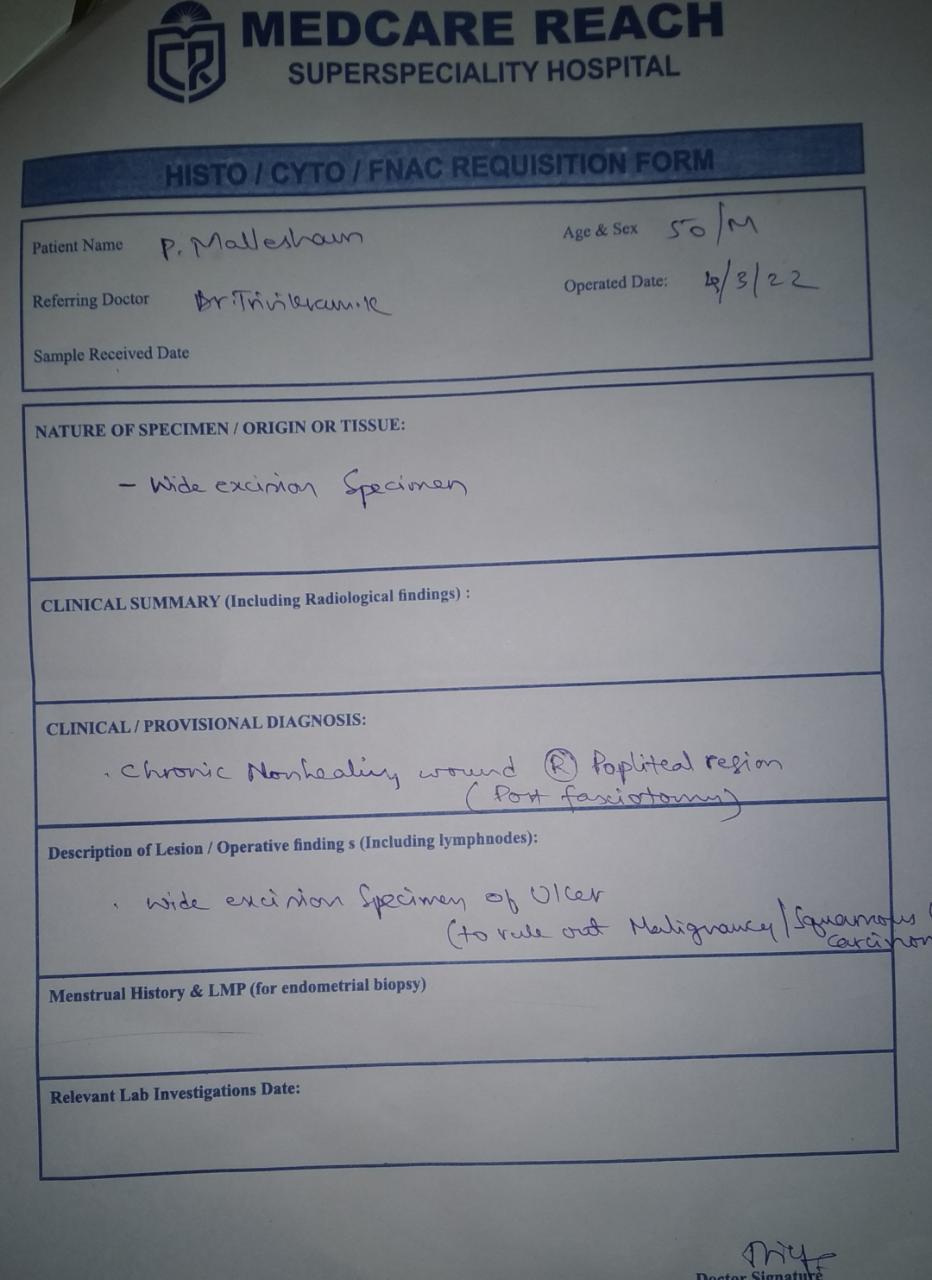 MEDCARE REACH
SUPERSPECIALITY HOSPITAL
HISTO / CYTO / FNAC REQUISITION FORM
Patient Name P. Mallesham Age & Sex 50/M
Referring Doctor Dr. Trivikram.K Operated Date: 4/3/22
Sample Received Date
NATURE OF SPECIMEN / ORIGIN OR TISSUE:
- Wide excision Specimen
CLINICAL SUMMARY (Including Radiological findings) :
CLINICAL / PROVISIONAL DIAGNOSIS:
. Chronic Nonhealing wound (R) Popliteal region
(Post fasciotomy)
Description of Lesion / Operative finding s (Including lymphnodes):
. Wide excision Specimen of Ulcer
(to rule out Malignancy / Squamous
Menstrual History & LMP (for endometrial biopsy)
Relevant Lab Investigations Date:
Doctor Signature